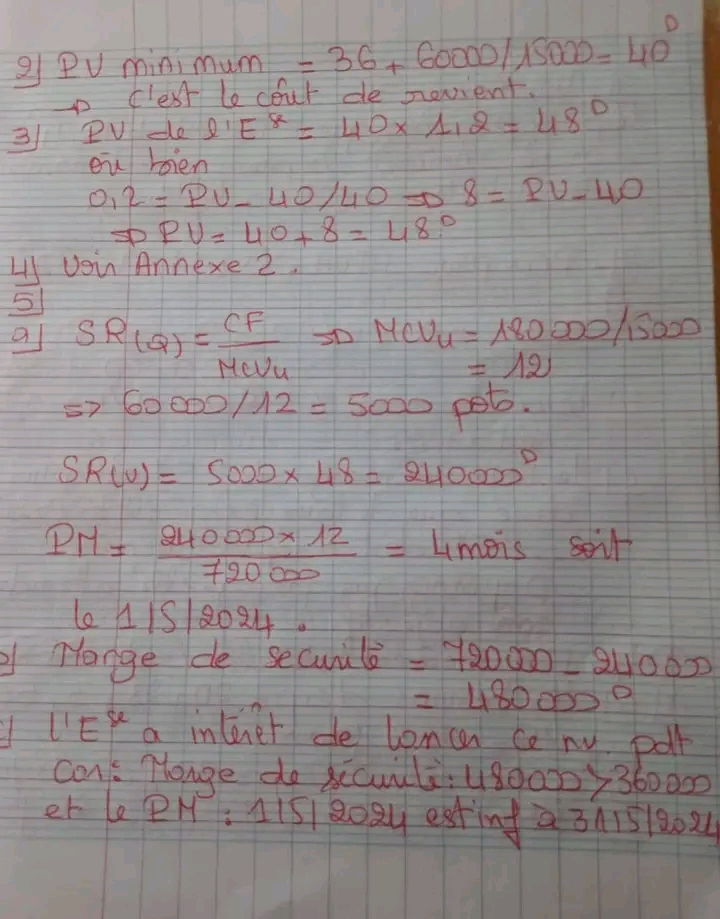 2) PV minimum = 36 + 60000/15000 = 40 D
→ c'est le coût de revient.
3) PV de l'Ese = 40 x 1,2 = 48 D
ou bien
0,2 = PV - 40/40 => 8 = PV - 40
=> PV = 40 + 8 = 48 D
4) Voir Annexe 2.
5)
a) SR(Q) = CF/MCVu => MCVu = 180000/15000
= 12
=> 60000/12 = 5000 pdts.
SR(v) = 5000 x 48 = 240000 D
PM = 240000 x 12/720000 = 4 mois soit
le 1/5/2024.
b) Marge de securité = 720000 - 240000
= 480000 D
c) l'Ese a intérêt de lancer ce nv. pdt
Car: Marge de sécurité: 480000 > 360000
et le PM: 1/5/2024 est inf à 31/5/2024